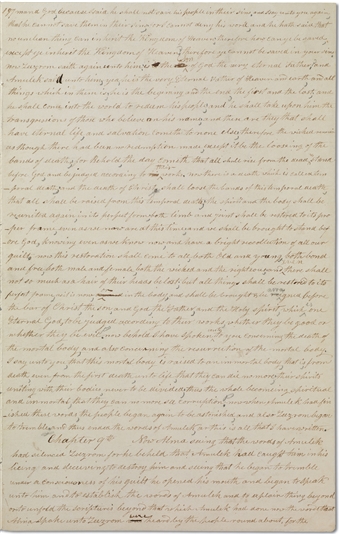 and God because I said he shall not save his people in their sins and I say unto you again
that he cannot save them in their sins for I cannot deny his word and he hath said that
no unclean thing can inherit the Kingdom of Heaven therefore how can ye be saved
except ye inherit the Kingdom of Heaven therefore ye cannot be saved in your sins
now Zezrom saith again unto him is the Son of God the very Eternal Father and
Amulek said unto him yea he is the very Eternal Father of Heaven and earth and all
things which in them is he is the begining and the end the first and the last and
he shall come into the world to redeem his people and he shall take upon him the
transgressions of those who believe on his name and these are they that shall
have eternal life and salvation cometh to none else therefore the wicked remain
as though there had been no redemption made except it be the loosing of the
bands of death for behold the day cometh that all shall rise from the dead & stand
before God and be judged according to their works now there is a death which is called a tem
-poral death and the death of Christ shall loose the bands of this temporal death
that all shall be raised from this temporal death the spirit and the body shall be
reunited again in its perfect form both limb and joint shall be restored to its pro
-per frame even as we now are at this time and we shall be brought to stand be
fore God knowing even as we know now and have a bright recollection of all our
guilt now this restoration shall come to all both old and young both bond
and free both male and female both the wicked and the righteous and there shall
not so much as a hair of their heads be lost but all things shall be restored to its
perfect frame as it is now in the body and shall be brought and arraigned before
the bar of Christ the Son and God the Father and the Holy Spirit which is one
Eternal God to be judged according to their works whether they be good or
whether they be evil now behold I have spoken to you concerning the death of
the mortal body and also concerning the resurrection of the mortal body
I say unto you that this mortal body is raised to an immortal body that is from
death even from the first death unto life that they can die no more their spirits
uniting with their bodies never to be divided thus the whole becoming spiritual
and immortal that they can no more see corruption now when Amulek had fin
ished these words the people began again to be astonished and also Zezrom began
to tremble and thus ended the words of Amulek or this is all that I have written
Chapter 9th Now Alma seeing that the words of Amulek
had silenced Zezrom for he beheld that Amulek had caught him in his
lieing and deceiving to destroy him and seeing that he began to tremble
under a consciousness of his guilt he opened his mouth and began to speak
unto him and to establish the words of Amulek and to explain things beyond
or to unfold the scriptures beyond that which Amulek had done now the words that
Alma spake unto Zezrom were heard by the people round about for the